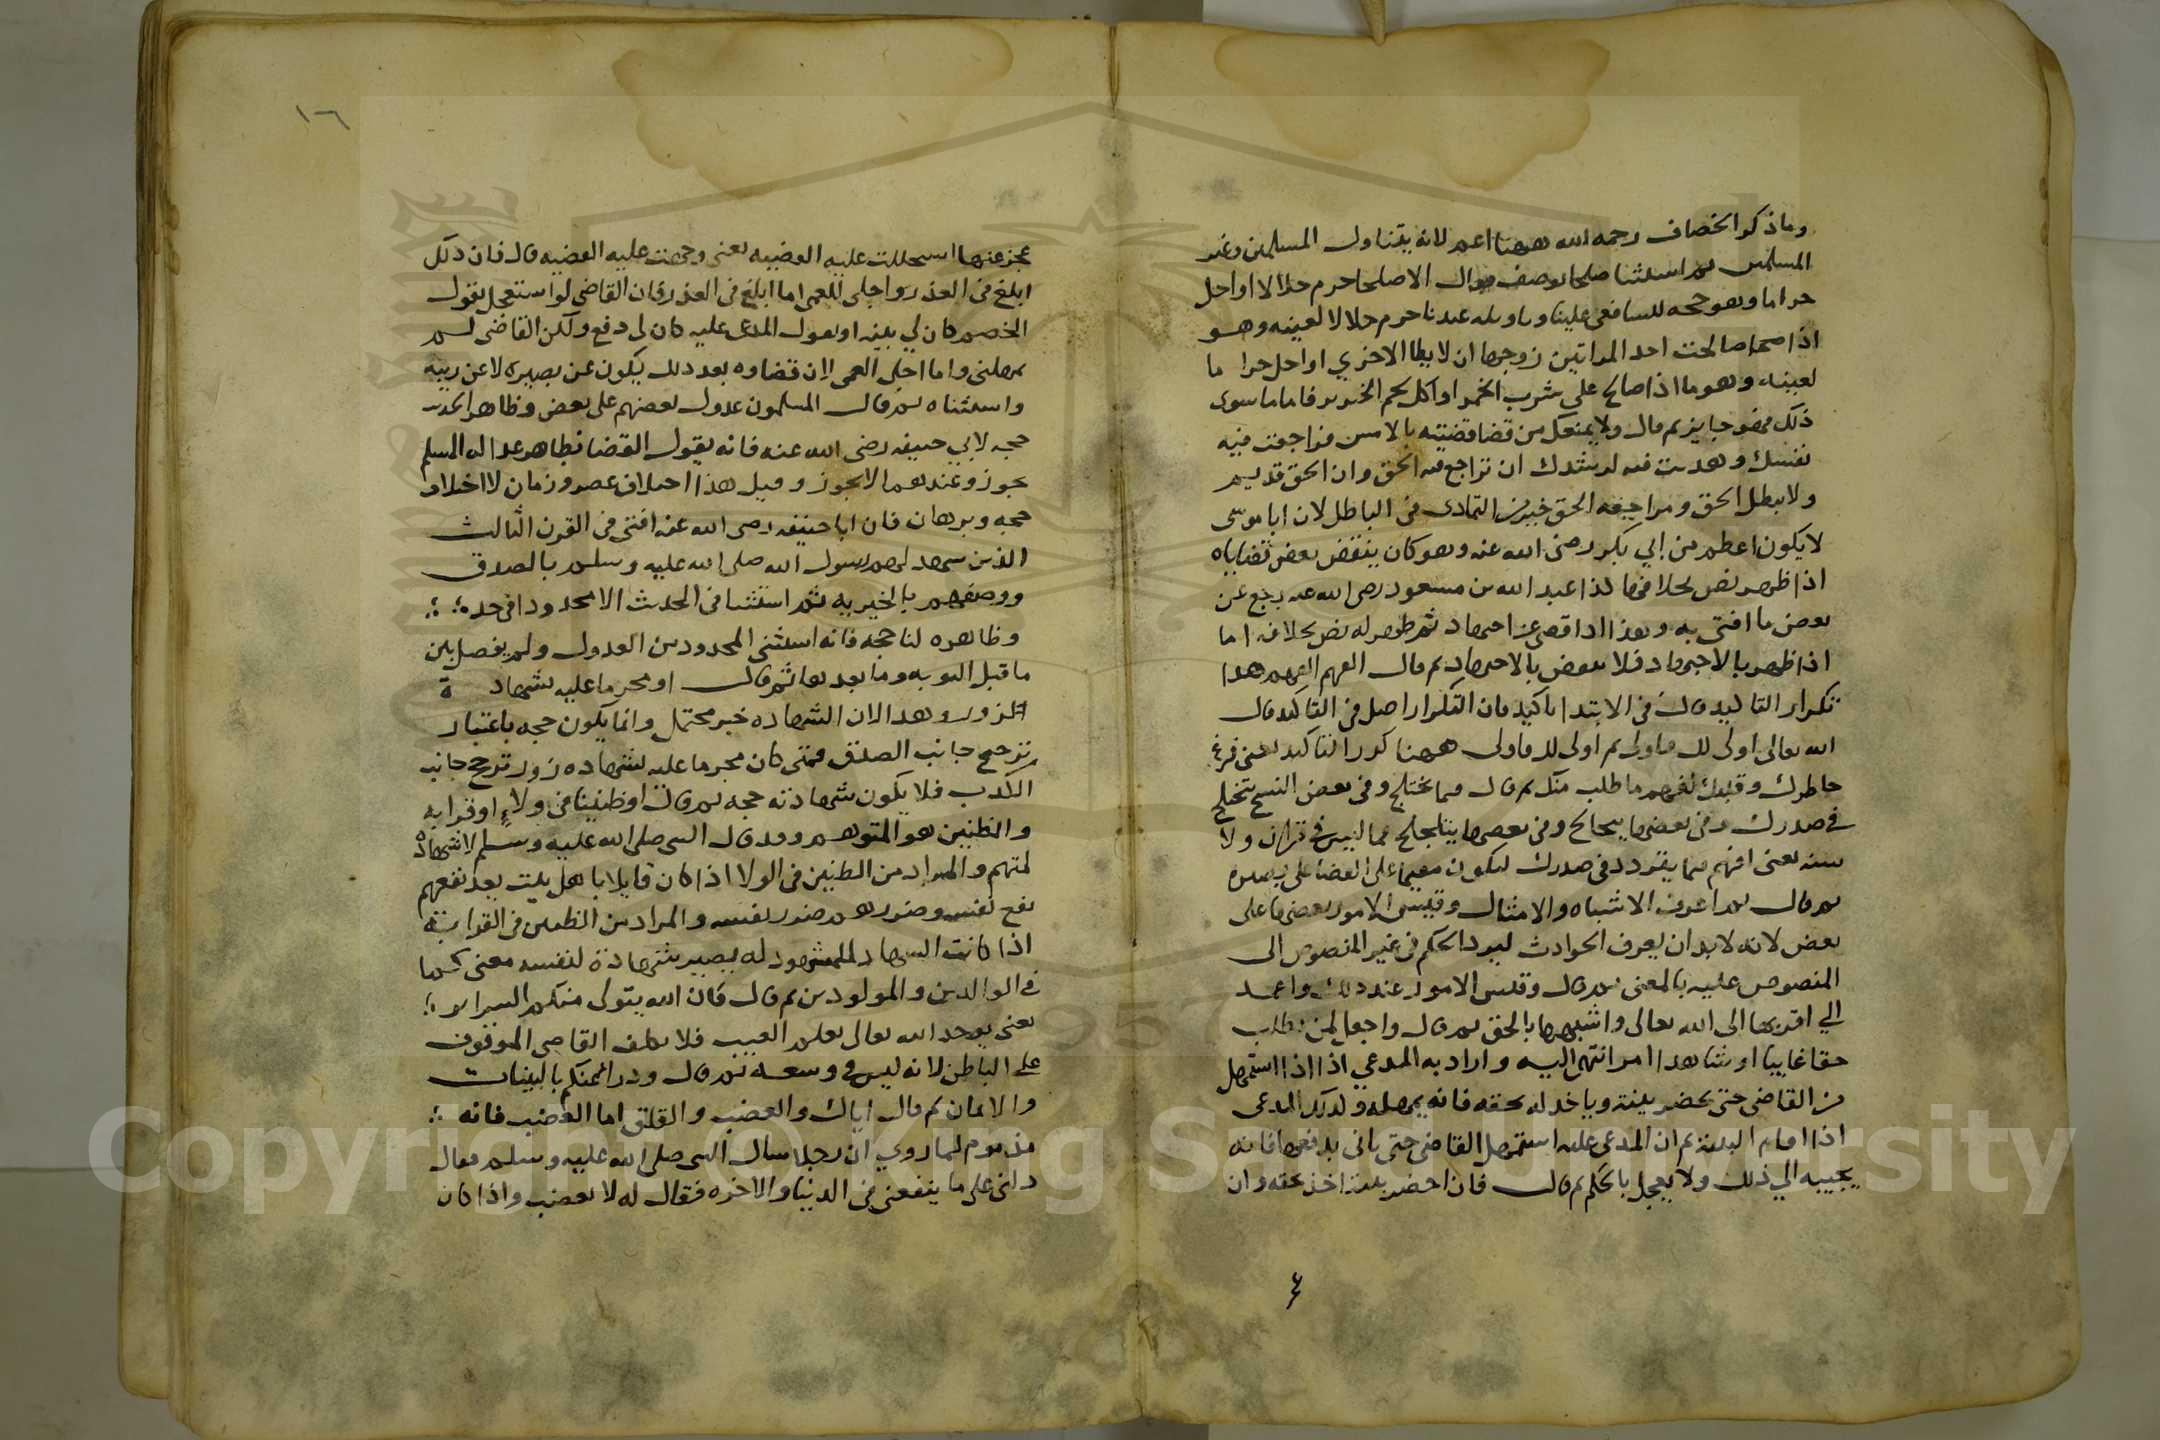 وماذكر الخصاف رحمه الله ههنا اعم لانه يتناول المسلمين وغير
المسلمين ثم استثنا صلحا بوصف فقال الا صلحا حرم حلالا او احل
حراما وهو حجه للشافعي علينا وتاويله عندنا حرم حلالا لعينه وهو
اذا صالحت احد المراتين زوجها ان لا يطا الاخري او احل حرا ما
لعينه وهو ما اذا صالح على شرب الخمر او اكل لحم الخنزير فاما ما سوى
ذلك فهو جايز ثم قال ولا يمنعك من قضا قضيته بالامس فراجعت فيه
نفسك وهديت فيه لرشدك ان تراجع فيه الحق وان الحق قديم
ولا يبطل الحق ومراجعه الحق خير من التمادى في الباطل لان ابا موسى
لا يكون اعظم من ابي بكر رضى الله عنه وهو كان ينقض بعض قضاياه
اذا ظهر نص بخلافها كذا عبد الله بن مسعود رضى الله عنه رجع عن
بعض ما افتى به وهذا اذا قضى عن اجتهاد ثم ظهر له نص بخلافه اما
اذا ظهر بالاجتهاد فلا ينقض بالاجتهاد ثم قال الفهم الفهم هذا
تكرار التاكيد قال في الابتدا تاكيد فان التكرار اصل في التاكيد قال
الله تعالى اولى لك فاولى ثم اولى لك فاولى ههنا كرر التاكيد يعنى فرغ
خاطرك وقلبك لفهم ما طلب منك ثم قال فيما يختلج وفى بعض النسخ يتخلج
في صدرك وفى بعضها وفى بعضها يتلجلج مما ليس في قران ولا
سنه يعنى افهم فيما يتردد في صدرك لتكون مقيما على القضا على بصيره
ثم قال ثم اعرف الاشباه والامثال وقيس الامور بعضها على
بعض لانه لابد ان يعرف الحوادث ليرد الحكم في غير المنصوص الى
المنصوص عليه بالمعنى ثم قال وقس الامور عند ذلك واعمد
الي اقربها الى الله تعالى واشبهها بالحق ثم قال واجعل لمن يطلب
حقا غايبا او شاهدا امدا ينتهى اليه واراد به المدعي اذا اذا استمهل
من القاضى حتى يحضر بينة وياخذ له بحقه فانه يمهله وكذلك المدعى
اذا اقام البينه ثم ان المدعى عليه استمهل القاضى حتى ياتى بدفعها فانه
يجيبه الي ذلك ولا يعجل بالحكم ثم قال فان احضر بينة اخذ بحقه وان
٤
١٦
عجز عنها استحللت عليه القضيه يعنى وجهت عليه القضيه قال فان ذلك
ابلغ في العذر واجلى للعمى اما ابلغ في العذر فان القاضى لو استعجل يقول
الخصم كان لي بينه او يقول المدعى عليه كان لى دفع ولكن القاضى لم
يمهلنى واما اجلى العمى لان قضاوه بعد ذلك يكون عن بصيره لا عن ريبه
واستثناه ثم قال المسلمون عدول بعضهم على بعض وظاهر الحديث
حجه لابي حنيفه رضى الله عنه فانه يقول القضا بظاهر عداله المسلم
يجوز وعندهما لا يجوز وقيل هذا اختلاف عصر وزمان لا اختلاف
حجه وبرهان فان ابا حنيفه رضى الله عنه افتى في القرن الثالث
الذين شهد لهم رسول الله صلى الله عليه وسلم بالصدق
ووصفهم بالخيريه ثم استثنا في الحديث الا محدودا في حد
وظاهره لنا حجه فانه استثنى المحدود من العدول ولم يفصل بين
ما قبل التوبه وما بعدها ثم قال او مجرما عليه شهادة
الزور وهذا لان الشهاده خبر محتمل وانما يكون حجه باعتبار
ترجح جانب الصدق فمتى كان مجرما عليه شهاده زور ترجح جانب
الكذب فلا يكون شهادته حجه ثم قال او ظنينا في ولاء او قرابه
والظنين هو المتوهم وقد قال النبى صلى الله عليه وسلم لا شهادة
لمتهم والمراد من الظنين في الولا اذا كان قايلا باهل بيت يعد نفعهم
نفع نفسه وضررهم ضرر نفسه والمراد من الظنين في القرابة
اذا كانت الشهاد للمشهود له يصير شهادة لنفسه معنى كما
في الوالدين والمولودين ثم قال فان الله يتولى منكم السراير
يعنى يوحد الله تعالى بعلم الغيب فلا يكلف القاضى الموقوف
على الباطن لانه ليس في وسعه ثم قال ودرا عنكم بالبينات
والايمان ثم قال اياك والغضب والقلق اما الغضب فانه
مذموم لما روي ان رجلا سال النبى صلى الله عليه وسلم فقال
دلنى على ما ينفعنى في الدنيا والاخره فقال له لا تغضب واذا كان
Copyright © King Saud University